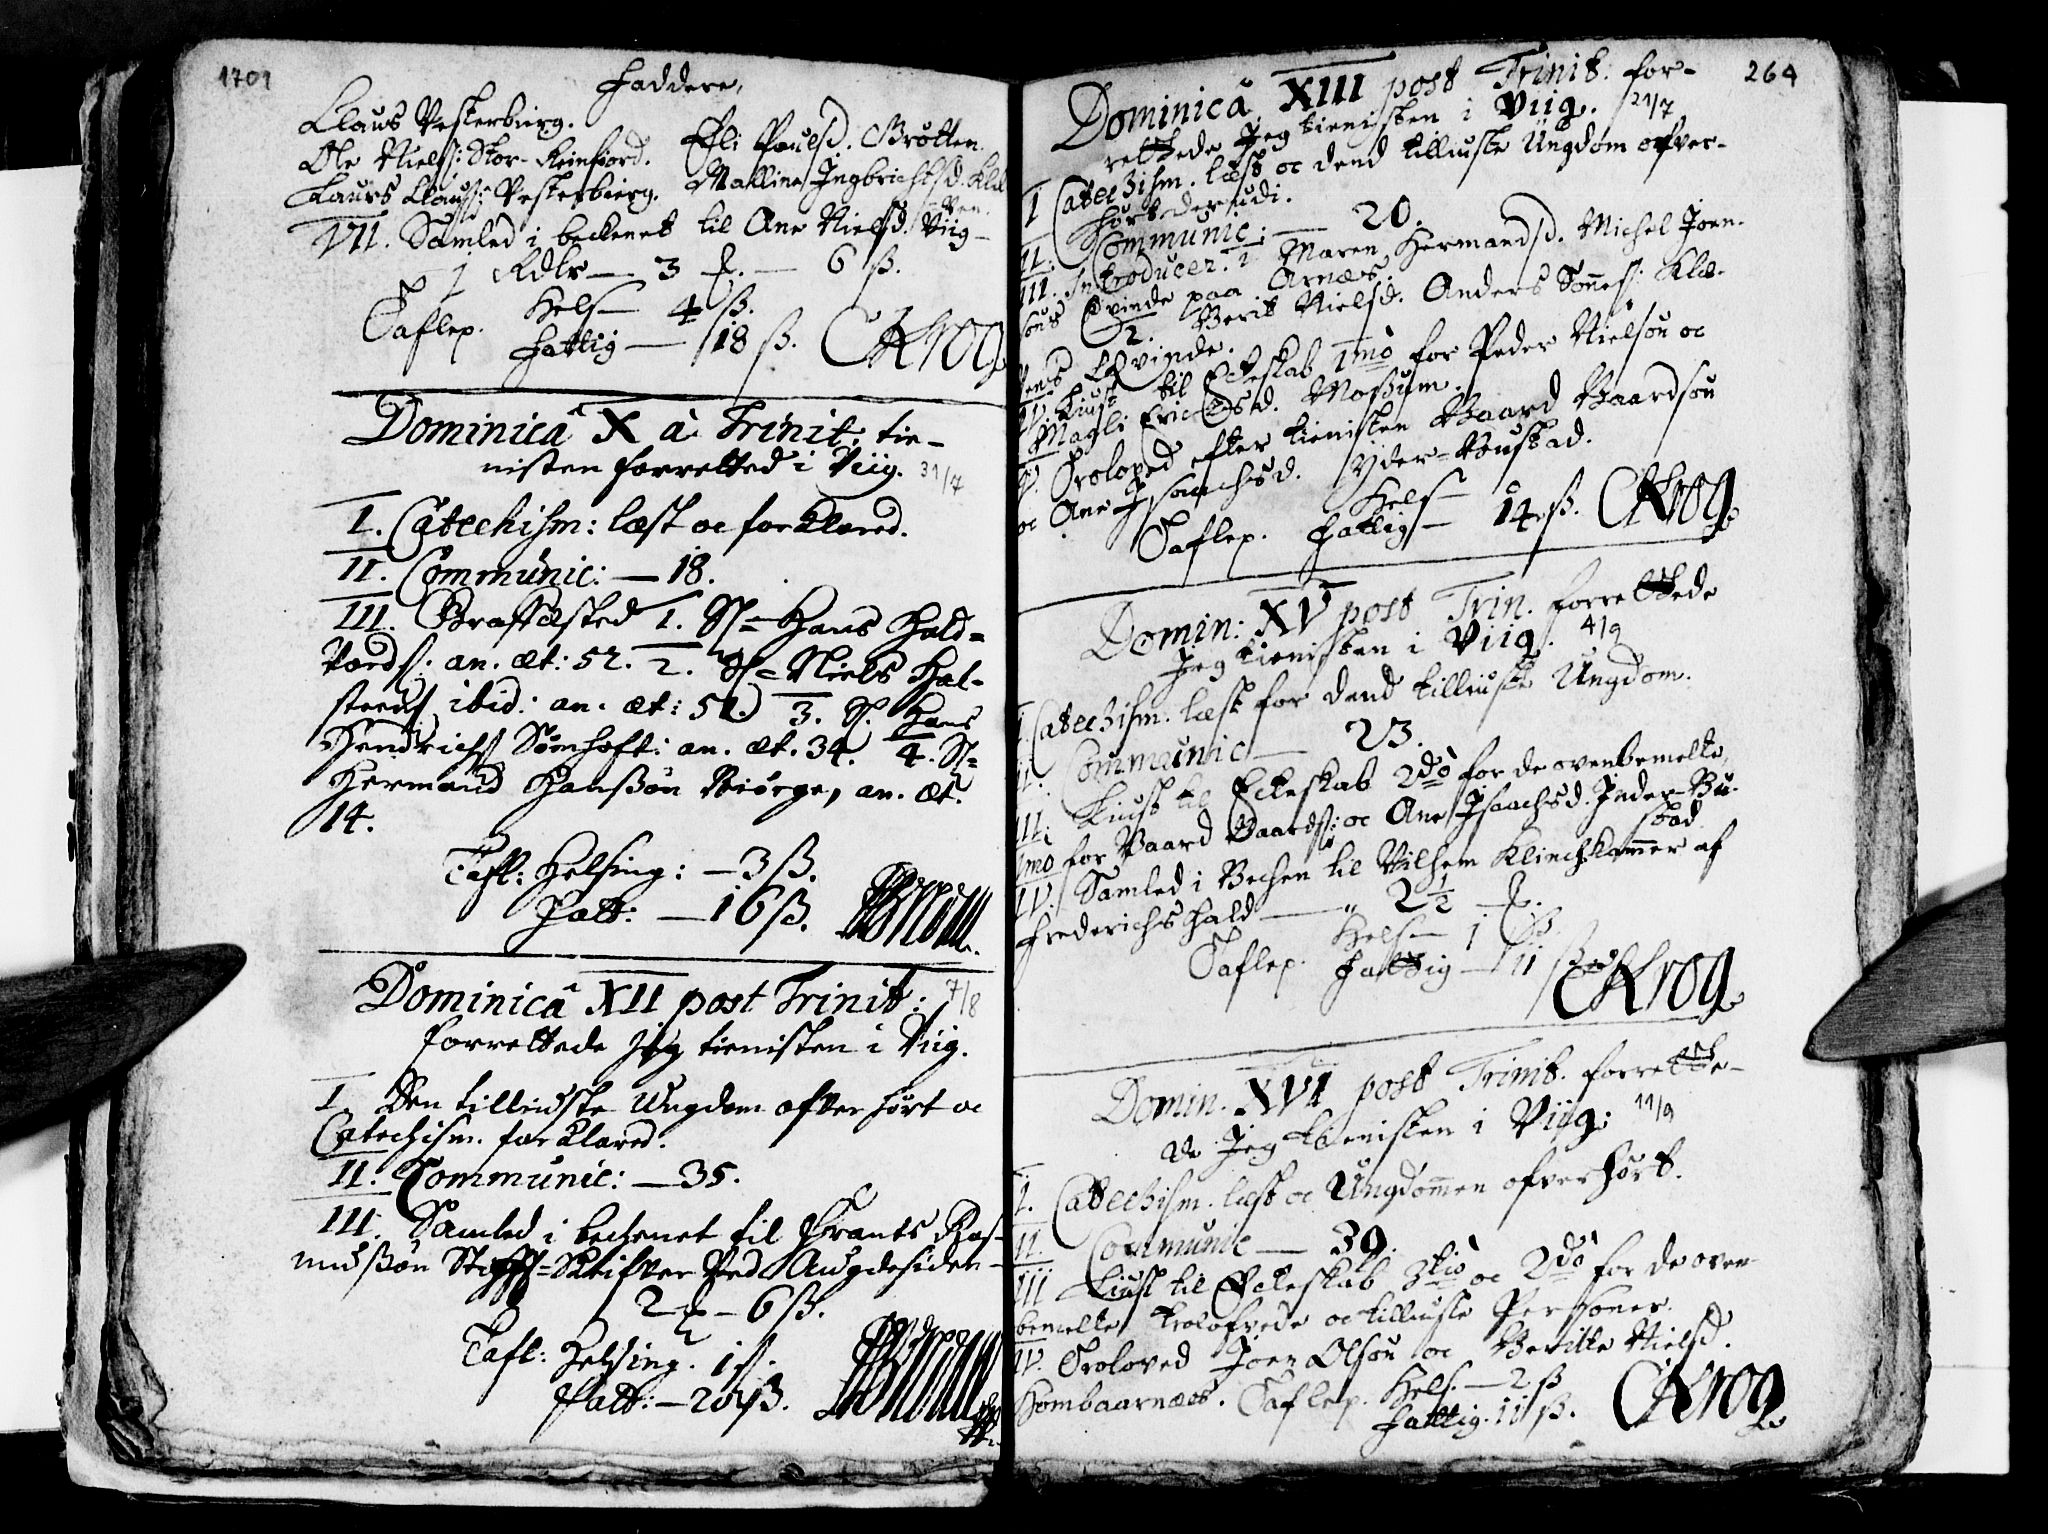 1701
Faddere,
Claus Vesterbierg.
Ole Niels: Stor-Reinfiord. Eli Poulsd. Brøtten.
Laurs Clauss: Vesterbierg. Malline Ingbrichtsd. Klæ
ven.
VII. Samled i beckenet til Ane Nielsd. Viig
1 Rdlr — 3 — 6 ß.
Taflep. Hels — 4 ß.
Fattig — 18 ß. CKrog
Dominicâ X à Trinit: tie-
nisten forretted i Viig. 31/7
I. Catechism: læst oc forklared.
II. Communic: — 18.
III. Graffæsted 1. Sl= Hans Hald=
vords. an. æt: 52. 2. Sl= Niels Hal-
steens ibid: an. æt: 52. 3. Sl. Hans
Hendrichs Sømhoft: an. æt. 34. 4. Sl=
Hermand Hanßøn Biørge, an. æt.
14.
Tafl: Helsing: — 3 ß.
Fatt: — 16 ß.
Dominicâ XII post Trinit: 7/8
forrettede Jeg tienisten i Viig.
I. Den tilliudste Ungdom ofverhørt oc
Catechism. forklared.
II. Communic: — 35.
III. Samled i beckenet til Frants Ras-
musßøn Stiffts-Skrifver ved Augdesiden
2 — 6 ß.
Tafl: Helsing. 1 ß.
Fatt: — 20 ß.
264
Dominicâ XIII post Trinit: for-
rettede Jeg tienisten i Viig. 21/7
I Catechism. læst oc dend tilliuste Ungdom ofver-
hørt derudi.
II. Communic: — 20.
III. Introducer. 1 Maren Hermandsd. Michel Joen-
søns Qvinde paa Arnæs.
2. Berit Nielsd. Anders Sønes: Klæ-
vens Qvinde.
IV. Liust til Ecteskab 1mo for Peder Nielsøn oc
Magli Ericksd. Moßum.
V. Troloved efter tienisten Baard Baardsøn
oc Ane Isaachsd. Yder-Bustad.
Hels —
Taflep. Fattig — 14 ß. CKrog
Domin: XV post Trin. forrettede
Jeg tienisten i Viig. 4/9
I Catechism. læst for dend tilliuste Ungdom.
II. Communic — 23.
III. Liust til Ecteskab 2do for de ovenbemelte,
1mo for Baard Baards: oc Ane Isaachsd. Inder-Bu-
stad
IV. Samled i Becken til Vilhem Klinchkammer af
Frederichshald — " 2 1/2
Hels — 1 ß.
Taflep. Fattig — 11 ß CKrog
Domin. XVI post Trinit. forrette-
de Jeg tienisten i Viig: 11/9
I. Catechism. læst oc Ungdommen ofverhørt.
II. Communic — 39.
III Liust til Ecteskab 3tio oc 2do for de oven-
bemelte trolofvede oc tilliuste Personer.
IV. Troloved Joen Olsøn oc Beritte Nielsd.
Hombaarnæs. Taflep. Hels. — 2 ß
Fattig. 11 ß. CKrog